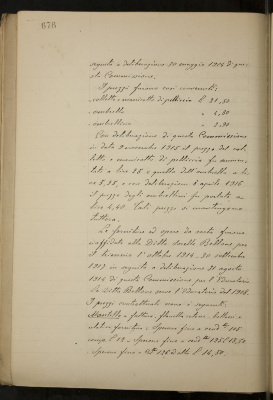 676
seguito a deliberazione 30 maggio 1914 di que-
sta Commissione.
I prezzi furono così convenuti:
colletto e manicotto di pelliccia £ 21,50
ombrello " 4,80
ombrellino " 3,90
Con deliberazione di questa Commissione
in data 2 novembre 1915 il prezzo del col-
letto e manicotto di pelliccia fu aumen-
tato a lire 25 e quello dell'ombrello a li-
re 5,25, e con deliberazione 6 aprile 1916
il prezzo degli ombrellini fu portato a
lire 4,40. Tali prezzi si mantengono
tuttora.
Le forniture ed opere da sarta furono
riaffidate alla Ditta Sorelle Bellano per
il triennio 1° ottobre 1914 - 30 settembre
1917 in seguito a deliberazione 31 agosto
1914 di questa Commissione per l'Educatorio
La Ditta Bellano serve l'Educatorio dal 1908.
I prezzi contrattuali erano i seguenti:
Mantello - fattura, flanella, cotone, bottoni e
relative forniture: Sprone fino a cend. 115
comp. £ 12 - Sprone fino a cend. 125 £ 13,50
- Sprone fino - D° 126 ed oltre £ 16,50.